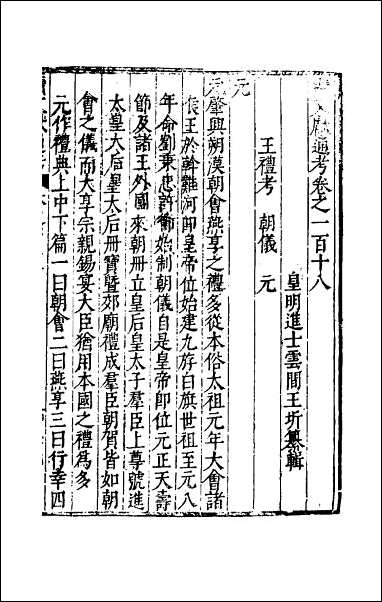 通考卷之一百十八
皇明進士雲間王圻纂輯
王禮考　朝儀　元
元
元肇興朔漠朝會燕享之禮多從本俗太祖元年大會諸
侯王於斡難河即皇帝位始建九斿白旗世祖至元八
年命劉秉忠許衡始制朝儀自是皇帝即位元正天壽
節及諸王外國來朝冊立皇后皇太子羣臣上尊號進
太皇太后皇太后冊寶暨郊廟禮成羣臣朝賀皆如朝
會之儀而大享宗親錫宴大臣猶用本國之禮為多
元作禮典上中下篇一曰朝會二曰燕享三曰行幸四